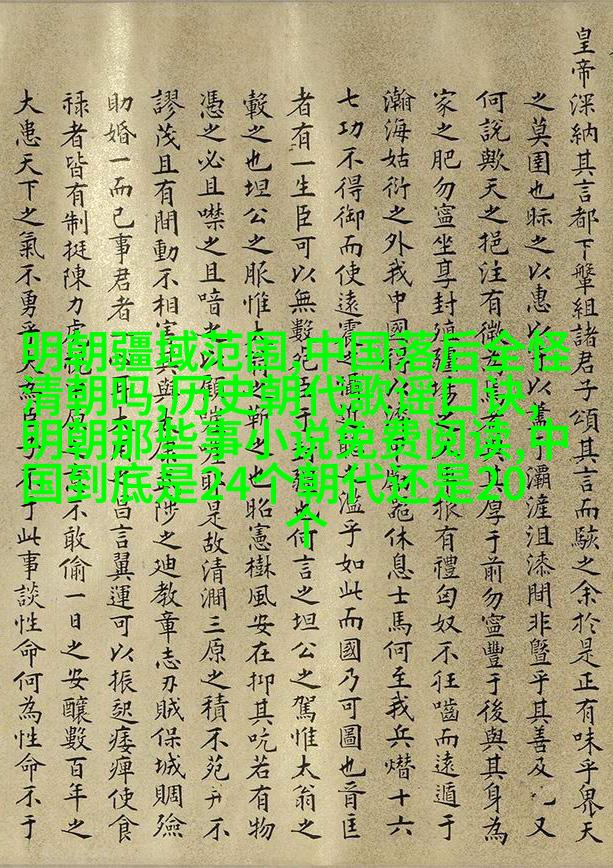 明朝疆域范围,中国落后全怪
清朝吗,历史朝代歌谣口诀,
明朝那些事小说免费阅读,中
国到底是24个朝代还是20
个
皇帝深納其言都下鞶組諸君子頌其言而駭之余於是正有味乎畏天
之莫圉也眎之以惠以于灞滻沮漆閒非曁乎其善及又
何說歟天之挹注有微其厚于前勿寧豐于後與其身為
家之肥勿寧坐享封根有禮匈奴不狂嚙而遠遁于
瀚海姑衍之外我中國軀休息士馬何至我兵熸十六
七功不得御而使遠震濫乎如此而國乃可圖也晉匡
者有一生臣可以無數何言之坦公之駕惟太翁之
轂之也坦公之賑惟之也昭憲樹風安在抑其吭若有物
憑之必且噤之且喑之是故清澗三原之積不苑不
謬茂且有間動不相害涉之廸教章志刃賊保城賙殮
助婚一而已事君者昌言翼運可以振起痿痺使食
祿者皆有制挺陳力不敢偷一日之安釀數百年之
大患天下之氣不勇于此事談性命何為性命不于